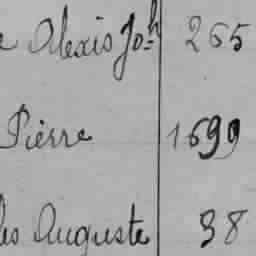 Alexis Joh 265
Pierre 1699
Auguste 98